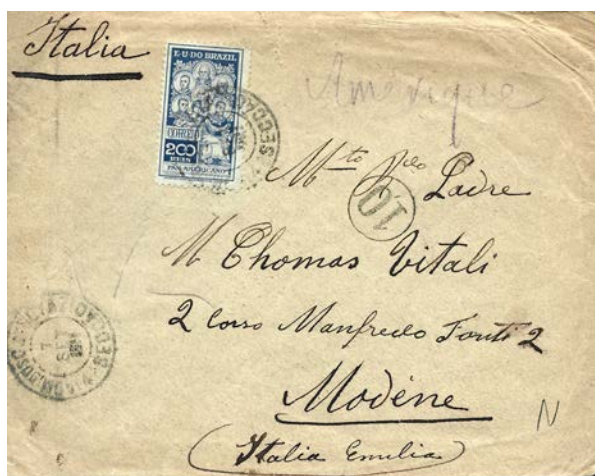 Italia
E·U·DO BRAZIL
CORREIO
200
REIS
PAN AMERICANO
Amerique
Mto Rdo Padre
10
M Thomas Vitali
2 Corso Manfredo Fonti 2
Modène
(Italia Emilia)
N
7
SET